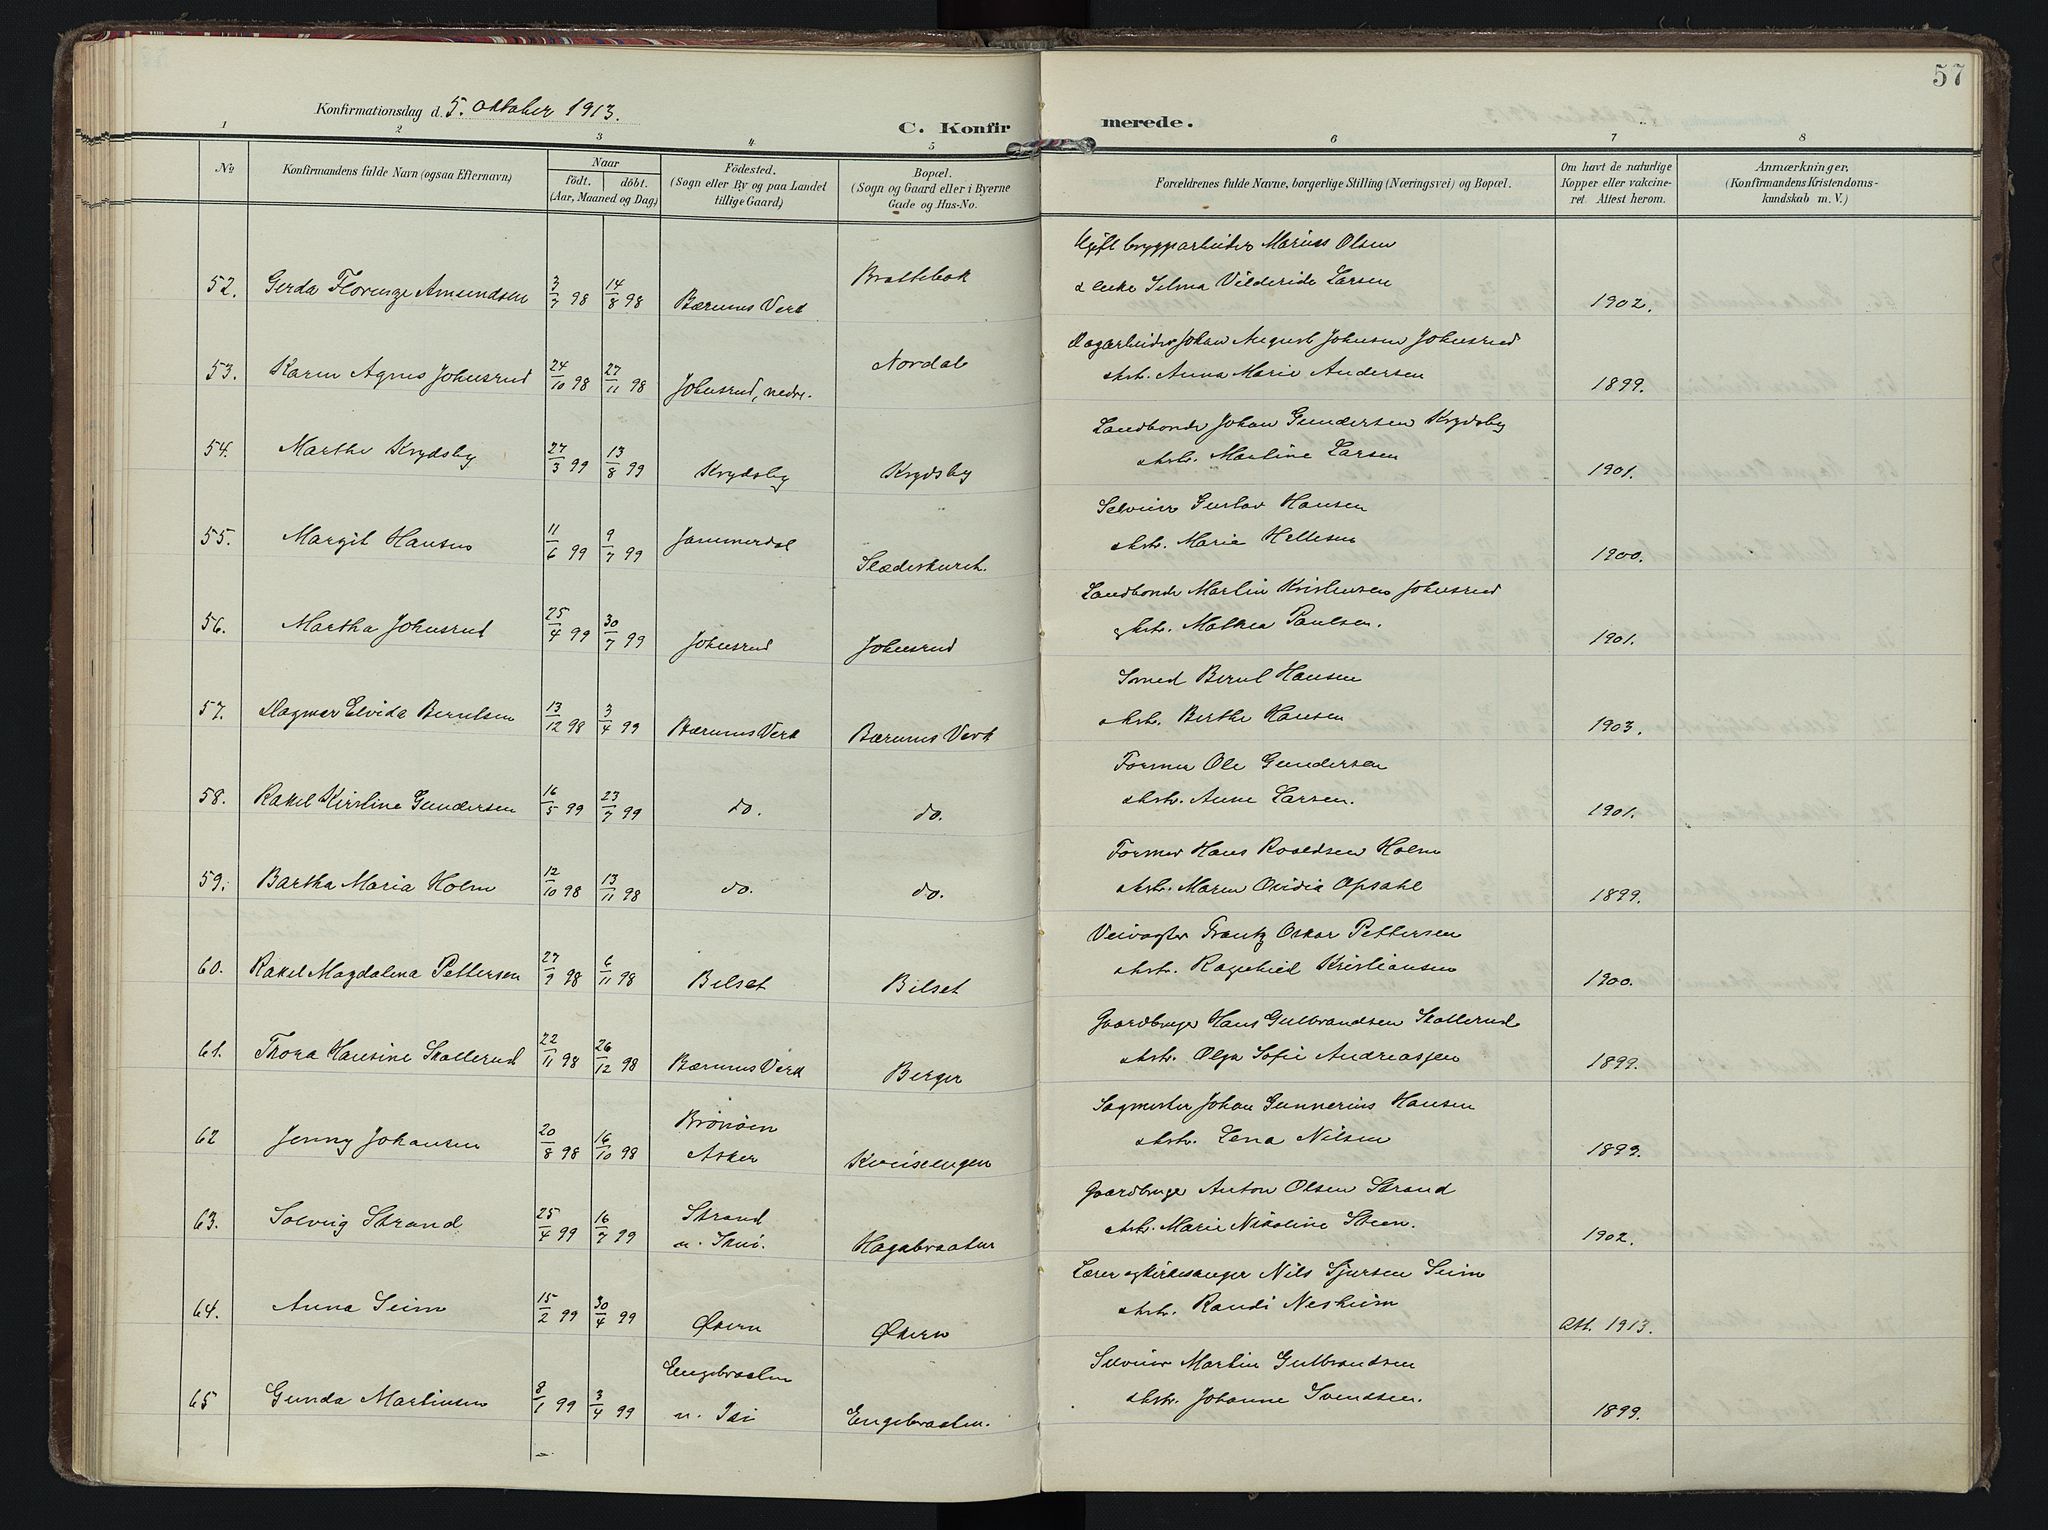 57
Konfirmationsdag d. 5. oktober 1913.
C. Konfirmerede.
1 2 3 4 5 6 7 8
No
Konfirmandens fulde Navn (ogsaa Efternavn)
Naar
födt. döbt.
(Aar, Maaned og Dag)
Födested.
(Sogn eller By og paa Landet
tillige Gaard)
Bopæl.
(Sogn og Gaard eller i Byerne
Gade og Hus-No.
Forældrenes fulde Navne, borgerlige Stilling (Næringsvei) og Bopæl.
Om havt de naturlige
Kopper eller vakcine-
ret. Attest herom.
Anmærkninger,
(Konfirmandens Kristendoms-
kundskab m. V.)
Ugift bryggarbeider Marius Olsen
52. Gerda Florenze Amundsen 3/7 98 14/8 98 Bærums Verk Brattebak
& enke Selma Vilderide Larsen 1902.
Dagarbeider Johan August Johnsen Johnsrud
53. Karen Agnes Johnsrud 24/10 98 27/11 98 Johnsrud, nedre. Nordal
& hstr. Anna Marie Andersen 1899.
Landbonde Johan Gundersen Krydsby
54. Marthe Krydsby 27/3 99 13/8 99 Krydsby Krydsby
& hstr. Martine Larsen 1901.
Selveier Gustav Hansen
55. Margit Hansen 11/6 99 9/7 99 Jammerdal
& hstr. Maria Hellesen 1900.
Landbonde Martin Kristensen Johnsrud
56. Martha Johnsrud 25/4 99 30/7 99 Johnsrud Johnsrud
& hstr. Mathea Paulsen. 1901.
Smed Bernt Hansen
57. Dagmar Elvida Berntsen 13/12 98 3/4 99 Bærums Verk Bærums Verk
& hstr. Berthe Hansen 1903.
Former Ole Gundersen
58. Rakel Kirstine Gundersen 16/5 99 23/7 99 do. do.
& hstr. Anne Larsen. 1901.
Former Hans Roaldsen Holm
59. Bartha Maria Holm 12/10 98 13/11 98 do. do.
& hstr. Maren Ovidia Opsahl 1899.
Veivogter Frantz Oskar Pettersen
60. Rakel Magdalena Pettersen 27/9 98 6/11 98 Bilset Bilset
& hstr. Ragnhild Kristiansen 1900.
Gaardbruger Hans Gulbrandsen Skollerud
61. Thora Hansine Skollerud 22/11 98 26/12 98 Bærums Verk Berger
& hstr. Olga Sofie Andreassen 1899.
Sagmester Johan Gunnerius Hansen
62 Jenny Johansen 20/8 98 16/10 98 Brönöen
Asker
& hstr. Lena Nilsen 1899.
Gaardbruger Anton Olsen Strand
63. Solveig Strand 25/4 99 16/7 99 Strand
u. Skui. Hagabraaten
& hstr. Marie Nikoline Steen. 1902.
Lærer og Kirkesanger Nils Sjursen Seim
64. Anna Seim 15/2 99 30/4 99 Økern Økern
& hstr. Randi Nesheim Att. 1913.
Selveier Martin Gulbrandsen
65 Gunda Martinsen 8/1 99 3/4 99 Engebraaten
u. Isi Engebraaten.
& hstr. Johanne Svendsen. 1899.